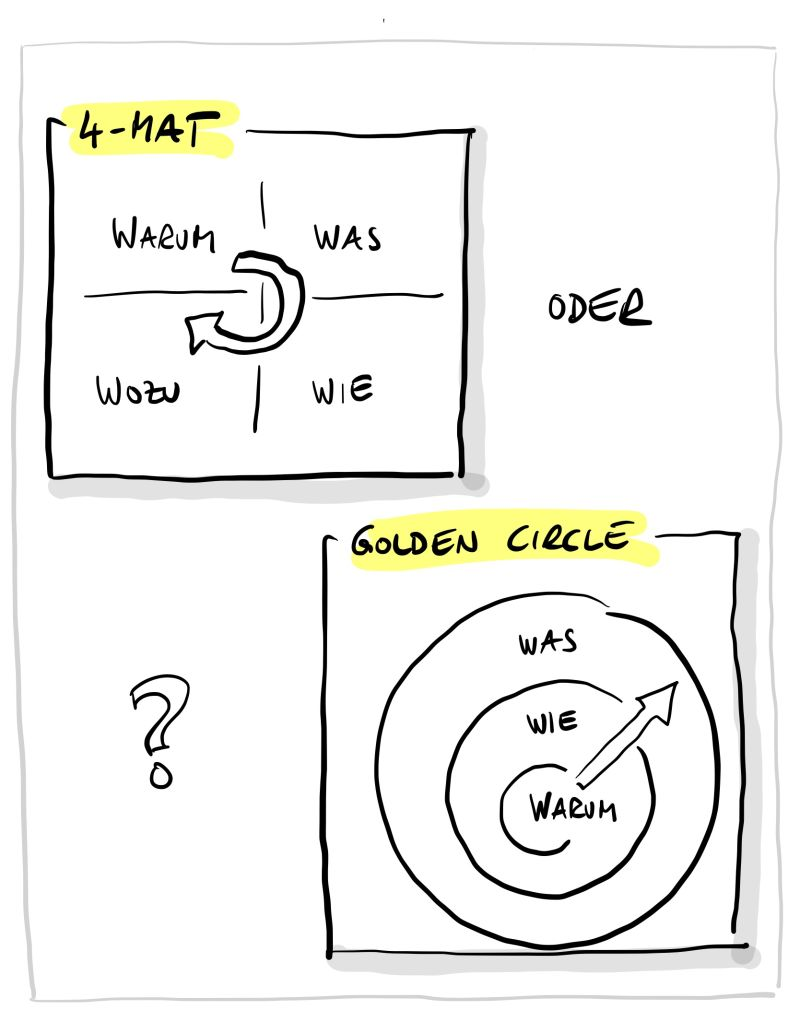 4-MAT
WARUM WAS
WOZU WIE
ODER
?
GOLDEN CIRCLE
WAS
WIE
WARUM